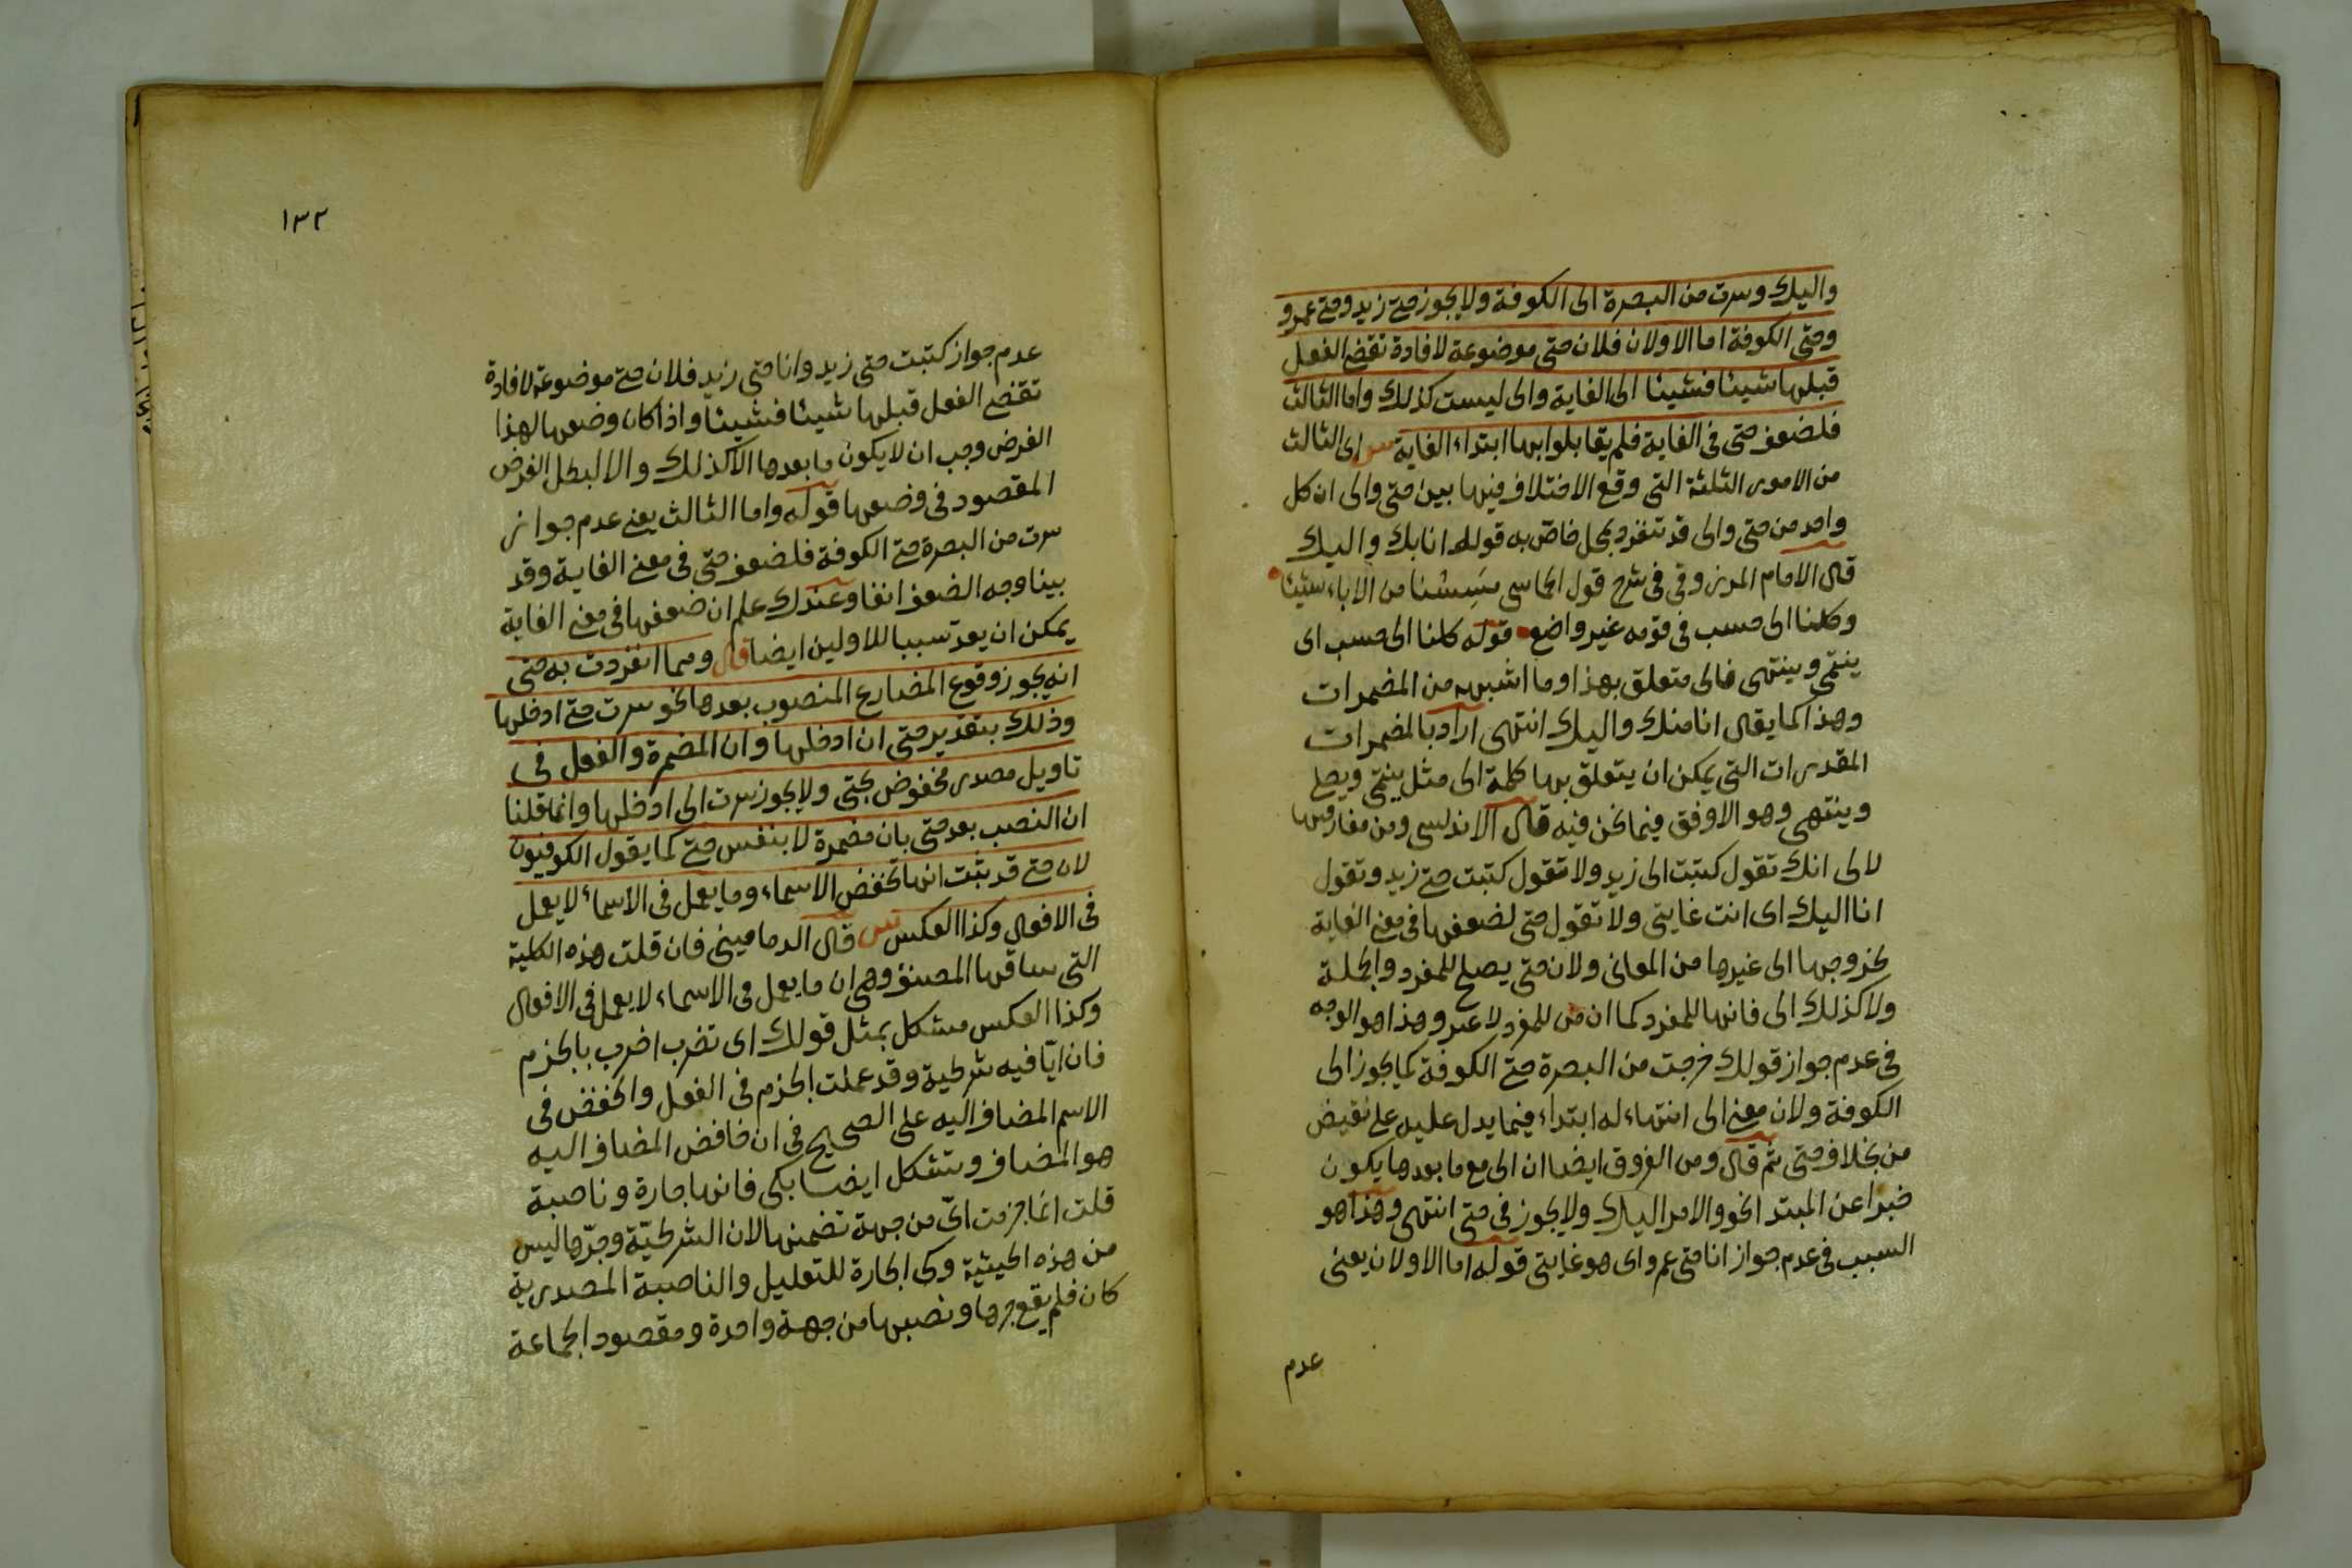 واليك وسرت من البصرة الى الكوفة ولا يجوز حتى زيد وحتى عمرو
وحتى الكوفة اما الاولان فلان حتى موضوعة لافادة تقضى الفعل
قبلها شيئا فشيئا الى الغاية والى ليست كذلك واما الثالث
فلضعف حتى فى الغاية فلم يقابلوا بها ابتداء الغاية س اى الثالث
من الامور الثلثة التى وقع الاختلاف فيها بين حتى والى ان كل
واحد من حتى والى قد تنفرد بمحل خاصّ به قوله انا بك واليك
قال الامام المرزوقى فى شرح قول الحماسى مَسِسْنا من الاباء شيئا
وكلنا الى حسب فى قومه غير واضع قوله كلنا الى حسب اى
ينتمى وينتهى فالى متعلق بهذا وما اشبهه من المضمرات
وهذا كما يقال انا منك واليك انتهى اراد بالمضمرات
المقدرات التى يمكن ان يتعلق بها كلمة الى مثل ينتمى ويصل
وينتهى وهو الاوفق فيما نحن فيه قال الاندلسى ومن مفارقتها
لالى انك تقول كتبت الى زيد ولا تقول كتبت حتى زيد وتقول
انا اليك اى انت غايتى ولا تقول حتى لضعفها فى معنى الغاية
بخروجها الى غيرها من المعانى ولان حتى يصلح للمفرد والجملة
ولا كذلك الى فانها للمفرد كما ان من للمفرد لا غير وهذا هو الوجه
فى عدم جواز قولك خرجت من البصرة حتى الكوفة كما يجوز الى
الكوفة ولان معنى الى انتهاء له ابتداء فيما يدل عليه على نقيض
من بخلاف حتى ثم قال ومن الفروق ايضا ان الى مع ما بعدها يكون
خبرا عن المبتدا نحو والامر اليك ولا يجوز فى حتى انتهى وهذا هو
السبب فى عدم جواز انا حتى عمرو اى هو غايتى قوله اما الاولان يعنى
عدم
١٣٢
عدم جواز كتبت حتى زيد وانا حتى زيد فلان حتى موضوعة لافادة
تقضى الفعل قبلها شيئا فشيئا واذا كان وضعها لهذا
الغرض وجب ان لا يكون ما بعدها الا كذلك والا لبطل الغرض
المقصود فى وضعها قوله واما الثالث يعنى عدم جواز
سرت من البصرة حتى الكوفة فلضعف حتى فى معنى الغاية وقد
بينا وجه الضعف انفا وعندك علم ان ضعفها فى معنى الغاية
يمكن ان يعدّ سببا للاولين ايضا قال ومما انفردت به حتى
انه يجوز وقوع المضارع المنصوب بعدها نحو سرت حتى ادخلها
وذلك بتقدير حتى ان ادخلها وان المضمرة والفعل فى
تاويل مصدر مخفوض بحتى ولا يجوز سرت الى ادخلها وانما قلنا
ان النصب بعد حتى بان مضمرة لا بنفس حتى كما يقول الكوفيون
لان حتى قد ثبت انها تخفض الاسماء وما يعمل فى الاسماء لا يعمل
فى الافعال وكذا العكس ش قال الدمامينى فان قلت هذه الكلية
التى ساقها المصنف وهى ان ما يعمل فى الاسماء لا يعمل فى الافعال
وكذا العكس مشكل بمثل قولك اى تضرب اضرب بالجزم
فان ايّا فيه شرطية وقد عملت الجزم فى الفعل والخفض فى
الاسم المضاف اليه على الصحيح فى ان خافض المضاف اليه
هو المضاف ويتشكل ايضا بكى فانها جارة وناصبة
قلت انما جزمت اىّ من جهة تضمنها لان الشرطيّة وجرّها ليس
من هذه الحيثية وكى الجارة للتعليل والناصبة المصدرية
كان فلم يقع جرها ونصبها من جهة واحدة ومقصود الجماعة